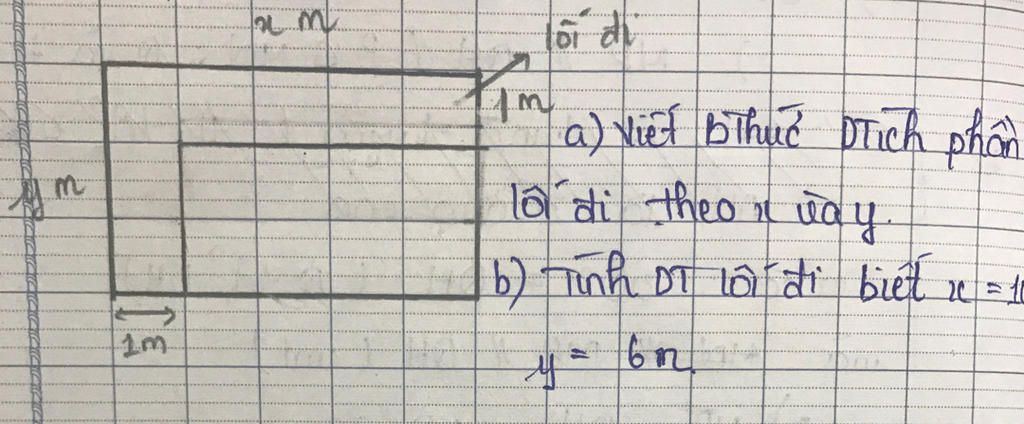 x m
lối đi
1m
a) Viết bThức DTích phần
y m
lối đi theo x và y.
b) Tính DT lối đi biết x = 1
1m
y = 6m.